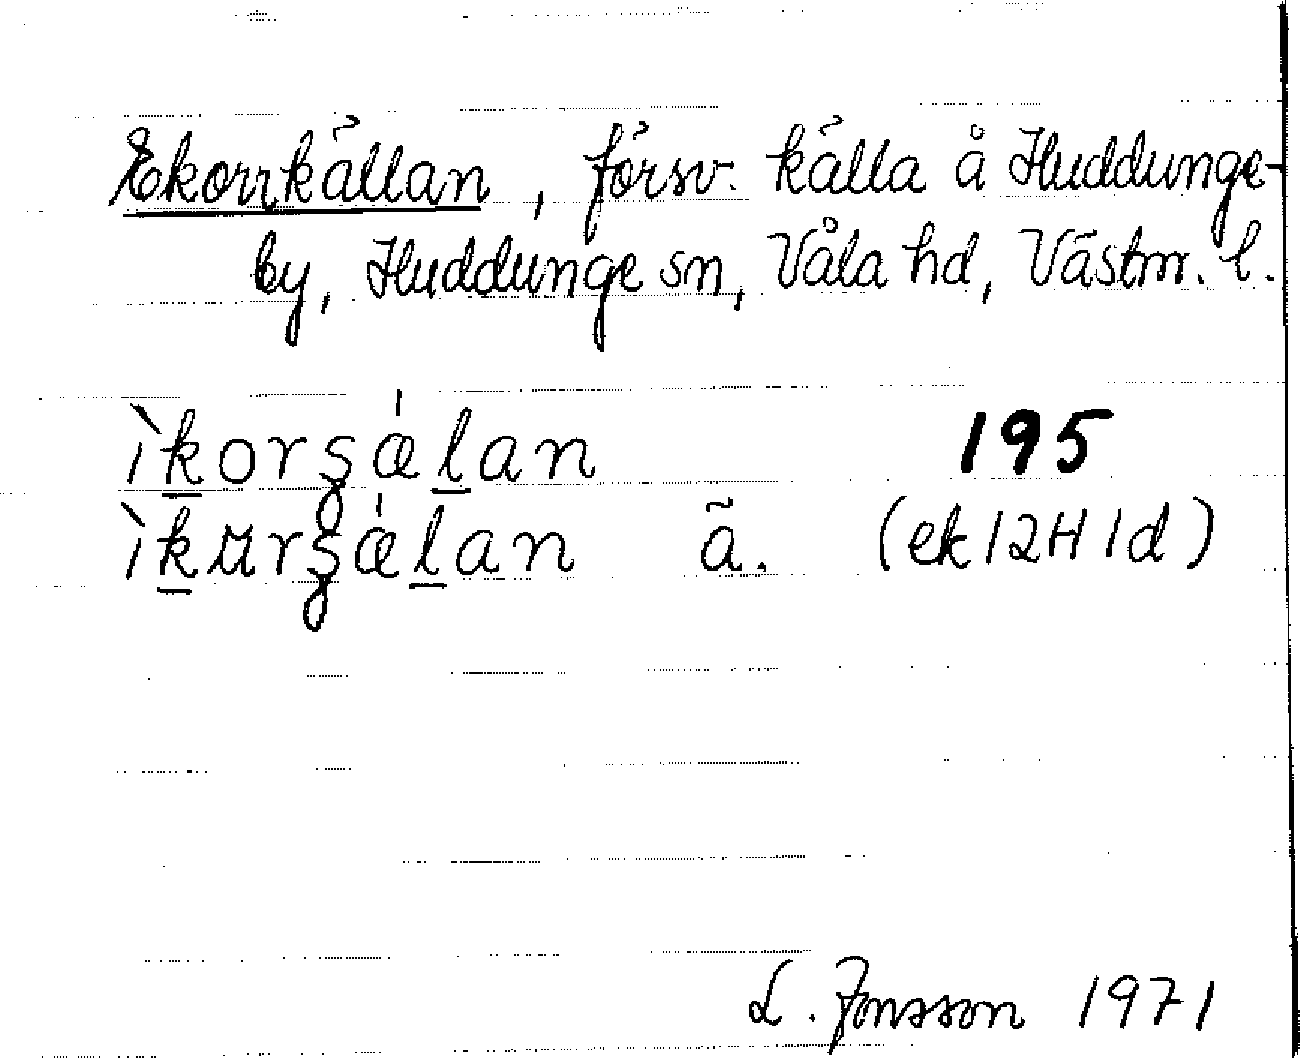 Ekorrkällan, försv. källa å Huddunge-
by, Huddunge sn, Våla hd, Västm. l.
ìkorʂǽlan 195
ìkurʂǽlan ä. (ek 12H 1d)
L. Jonsson 1971